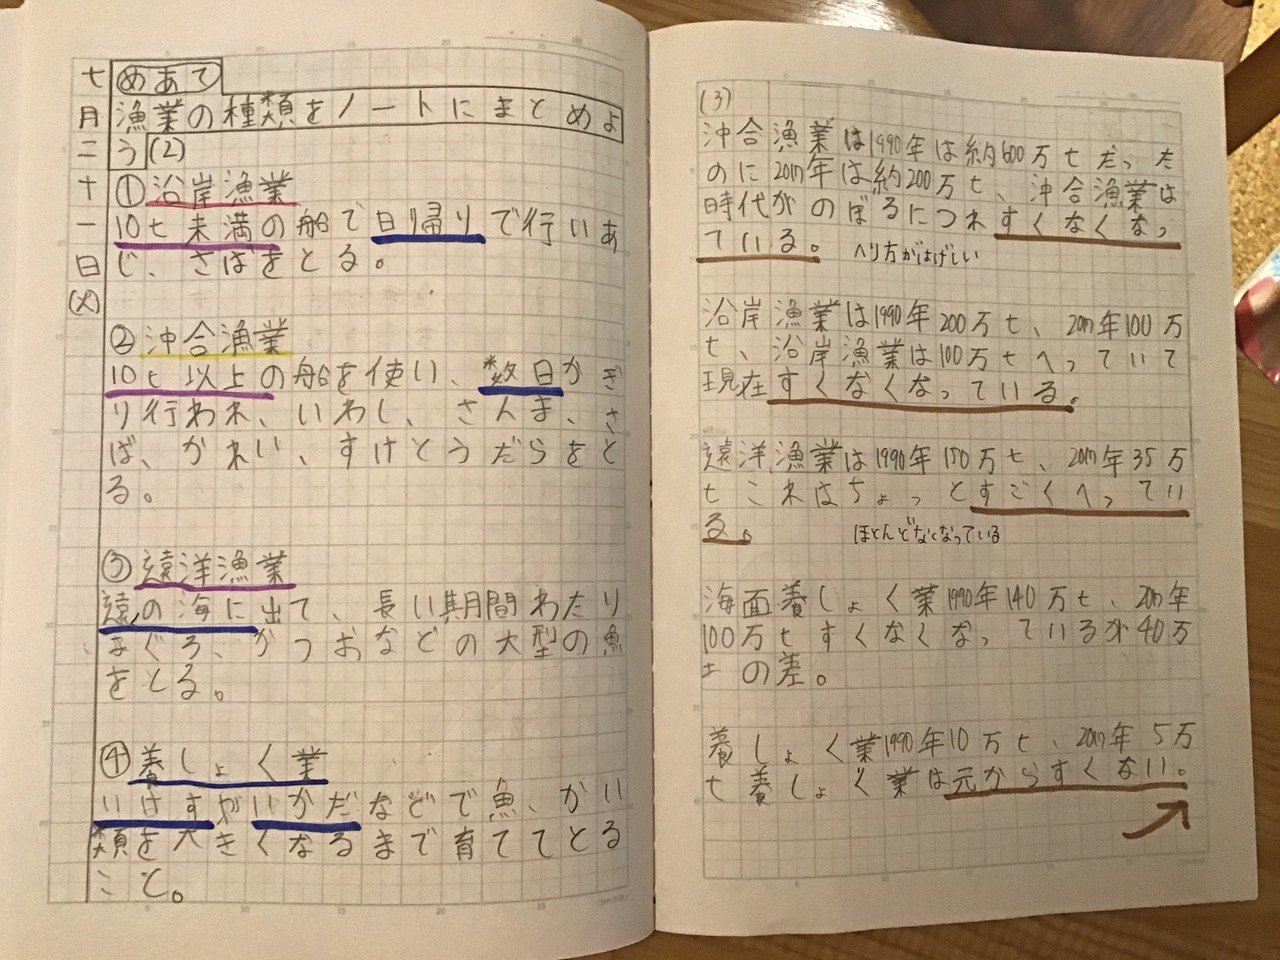 七月二十一日(火)
めあて
漁業の種類をノートにまとめよ
う(2)
①沿岸漁業
10t未満の船で日帰りで行いあ
じ、さばをとる。
②沖合漁業
10t以上の船を使い、*数日かぎ
り行われ、いわし、さんま、さ
ば、かれい、すけとうだらをと
る。
③遠洋漁業
遠の海に出て、長い期間わたり
まぐろ、かつおなどの大型の魚
をとる。
④養しょく業
いけすやいかだなどで魚、かい
類を大きくなるまで育ててとる
こと。
(3)
沖合漁業は1990年は約600万tだった
のに2017年は約200万t、沖合漁業は
時代がのぼるにつれすくなくなっ
ている。 へり方がはげしい
沿岸漁業は1990年200万t、2017年100万
t、沿岸漁業は100万tへっていて
現在すくなくなっている。
遠洋漁業は1990年150万t、2017年35万
tこれはちょっとすごくへってい
る。 ほとんどなくなっている
海面養しょく業1990年140万t、2017年
100万tすくなくなっているが40万
tの差。
養しょく業1990年10万t、2017年5万
t養しょく業は元からすくない。